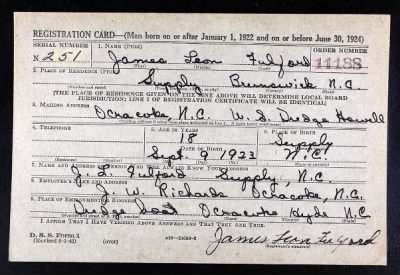 REGISTRATION CARD—(Men born on or after January 1, 1922 and on or before June 30, 1924)
SERIAL NUMBER 1. NAME (Print) ORDER NUMBER
N 251 James Leon Fulford 11188
(First) (Middle) (Last)
2. PLACE OF RESIDENCE (Print)
Supply Brunswick N.C.
(THE PLACE OF RESIDENCE GIVEN ON THE LINE ABOVE WILL DETERMINE LOCAL BOARD
JURISDICTION; LINE 2 OF REGISTRATION CERTIFICATE WILL BE IDENTICAL)
3. MAILING ADDRESS
Ocracoke N.C. W. I. Dredge Howell
4. TELEPHONE 5. AGE IN YEARS 6. PLACE OF BIRTH
18 Supply
DATE OF BIRTH
Sept. 9 1923 N.C.
7. NAME AND ADDRESS OF PERSON WHO WILL ALWAYS KNOW YOUR ADDRESS
J. L. Fulford Supply, N.C.
8. EMPLOYER'S NAME AND ADDRESS
J. W. Richards Ocracoke, N.C.
9. PLACE OF EMPLOYMENT OR BUSINESS
Dredge boat Ocracoke Hyde N.C
I AFFIRM THAT I HAVE VERIFIED ABOVE ANSWERS AND THAT THEY ARE TRUE.
D. S. S. Form 1
(Revised 6-9-42) (over) James Leon Fulford
(Registrant's signature)